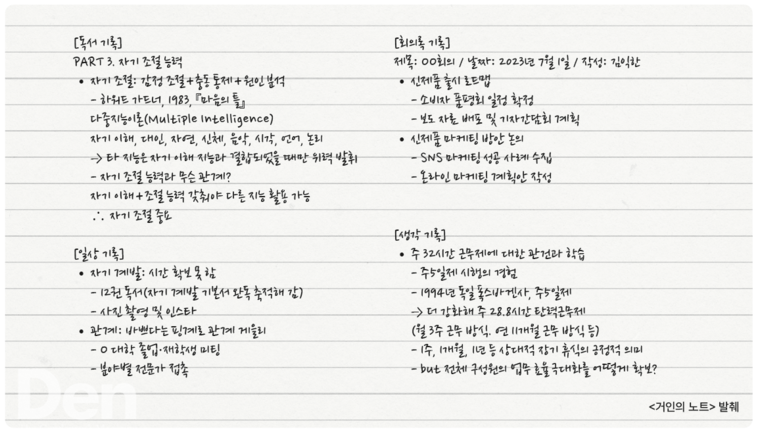 [독서 기록]
PART 3. 자기 조절 능력
• 자기 조절: 감정 조절+충동 통제+원인 분석
- 하워드 가드너, 1983, 『마음의 틀』
다중지능이론(Multiple Intelligence)
자기 이해, 대인, 자연, 신체, 음악, 시각, 언어, 논리
→ 타 지능은 자기 이해 지능과 결합되었을 때만 위력 발휘
- 자기 조절 능력과 무슨 관계?
자기 이해+조절 능력 갖춰야 다른 지능 활용 가능
∴ 자기 조절 중요
[일상 기록]
• 자기 계발: 시간 확보 못 함
- 12권 독서(자기 계발 기본서 완독 축적해 감)
- 사진 촬영 및 인스타
• 관계: 바쁘다는 핑계로 관계 게을리
- O 대학 졸업·재학생 미팅
- 분야별 전문가 접촉
[회의록 기록]
제목: OO회의 / 날짜: 2023년 7월 1일 / 작성: 김익한
• 신제품 출시 로드맵
- 소비자 품평회 일정 확정
- 보도 자료 배포 및 기자간담회 계획
• 신제품 마케팅 방안 논의
- SNS 마케팅 성공 사례 수집
- 온라인 마케팅 계획안 작성
[생각 기록]
• 주 32시간 근무제에 대한 관견과 학습
- 주5일제 시행의 경험
- 1994년 독일 폭스바겐사, 주5일제
→ 더 강화해 주 28.8시간 탄력근무제
(월 3주 근무 방식. 연 11개월 근무 방식 등)
- 1주, 1개월, 1년 등 상대적 장기 휴식의 긍정적 의미
- but 전체 구성원의 업무 효율 극대화를 어떻게 확보?
<거인의 노트> 발췌
Den